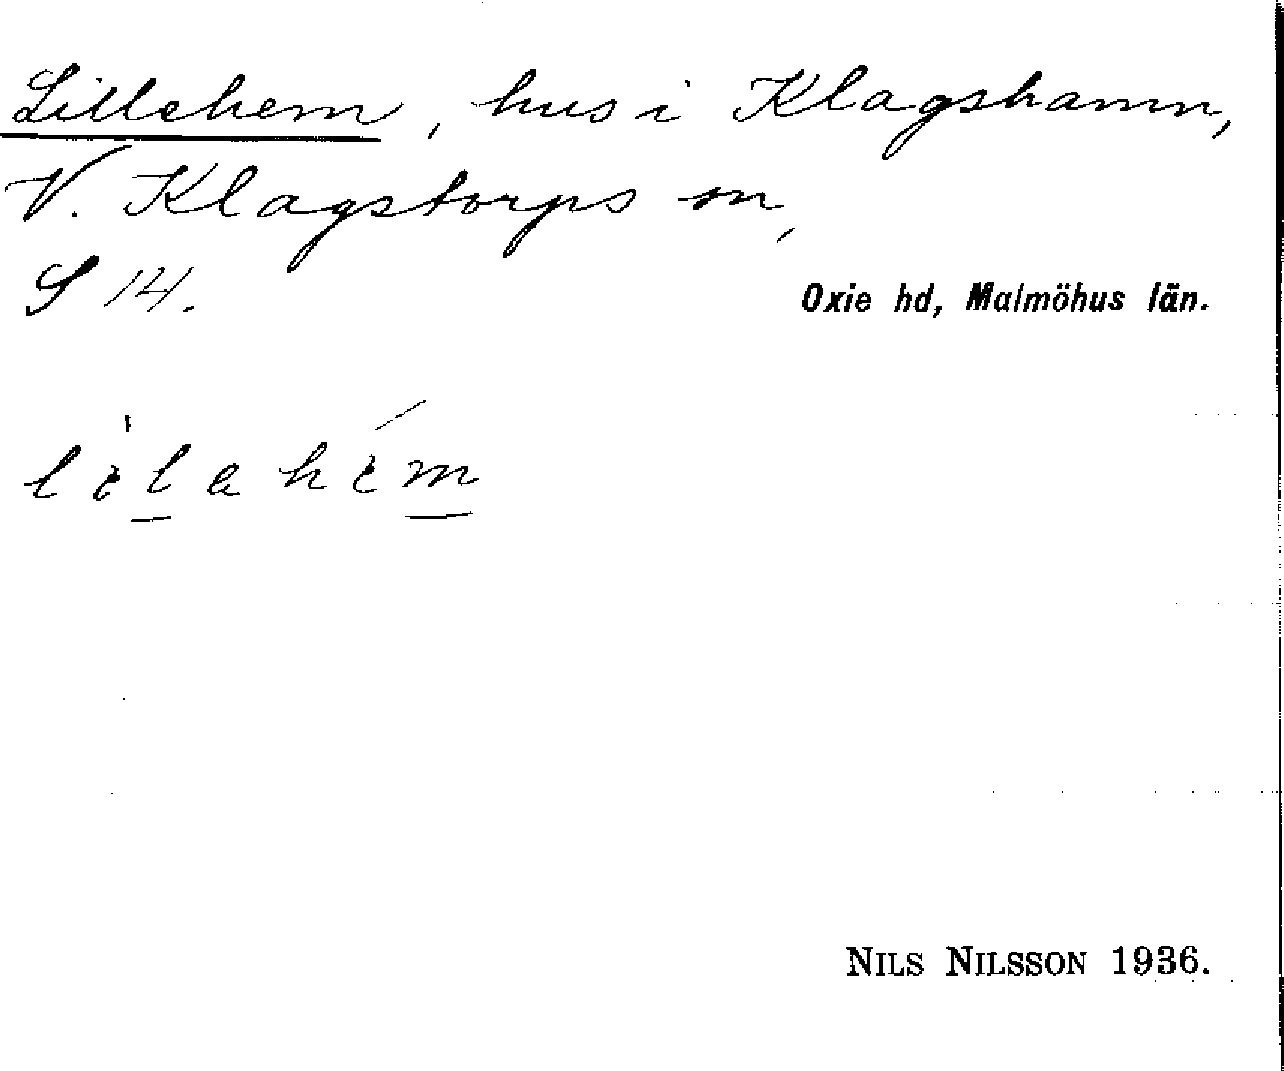 Lillehem, hus i Klagshamn,
V. Klagstorps sn,
S 14.
Oxie hd, Malmöhus län.
lilahem
NILS NILSSON 1936.